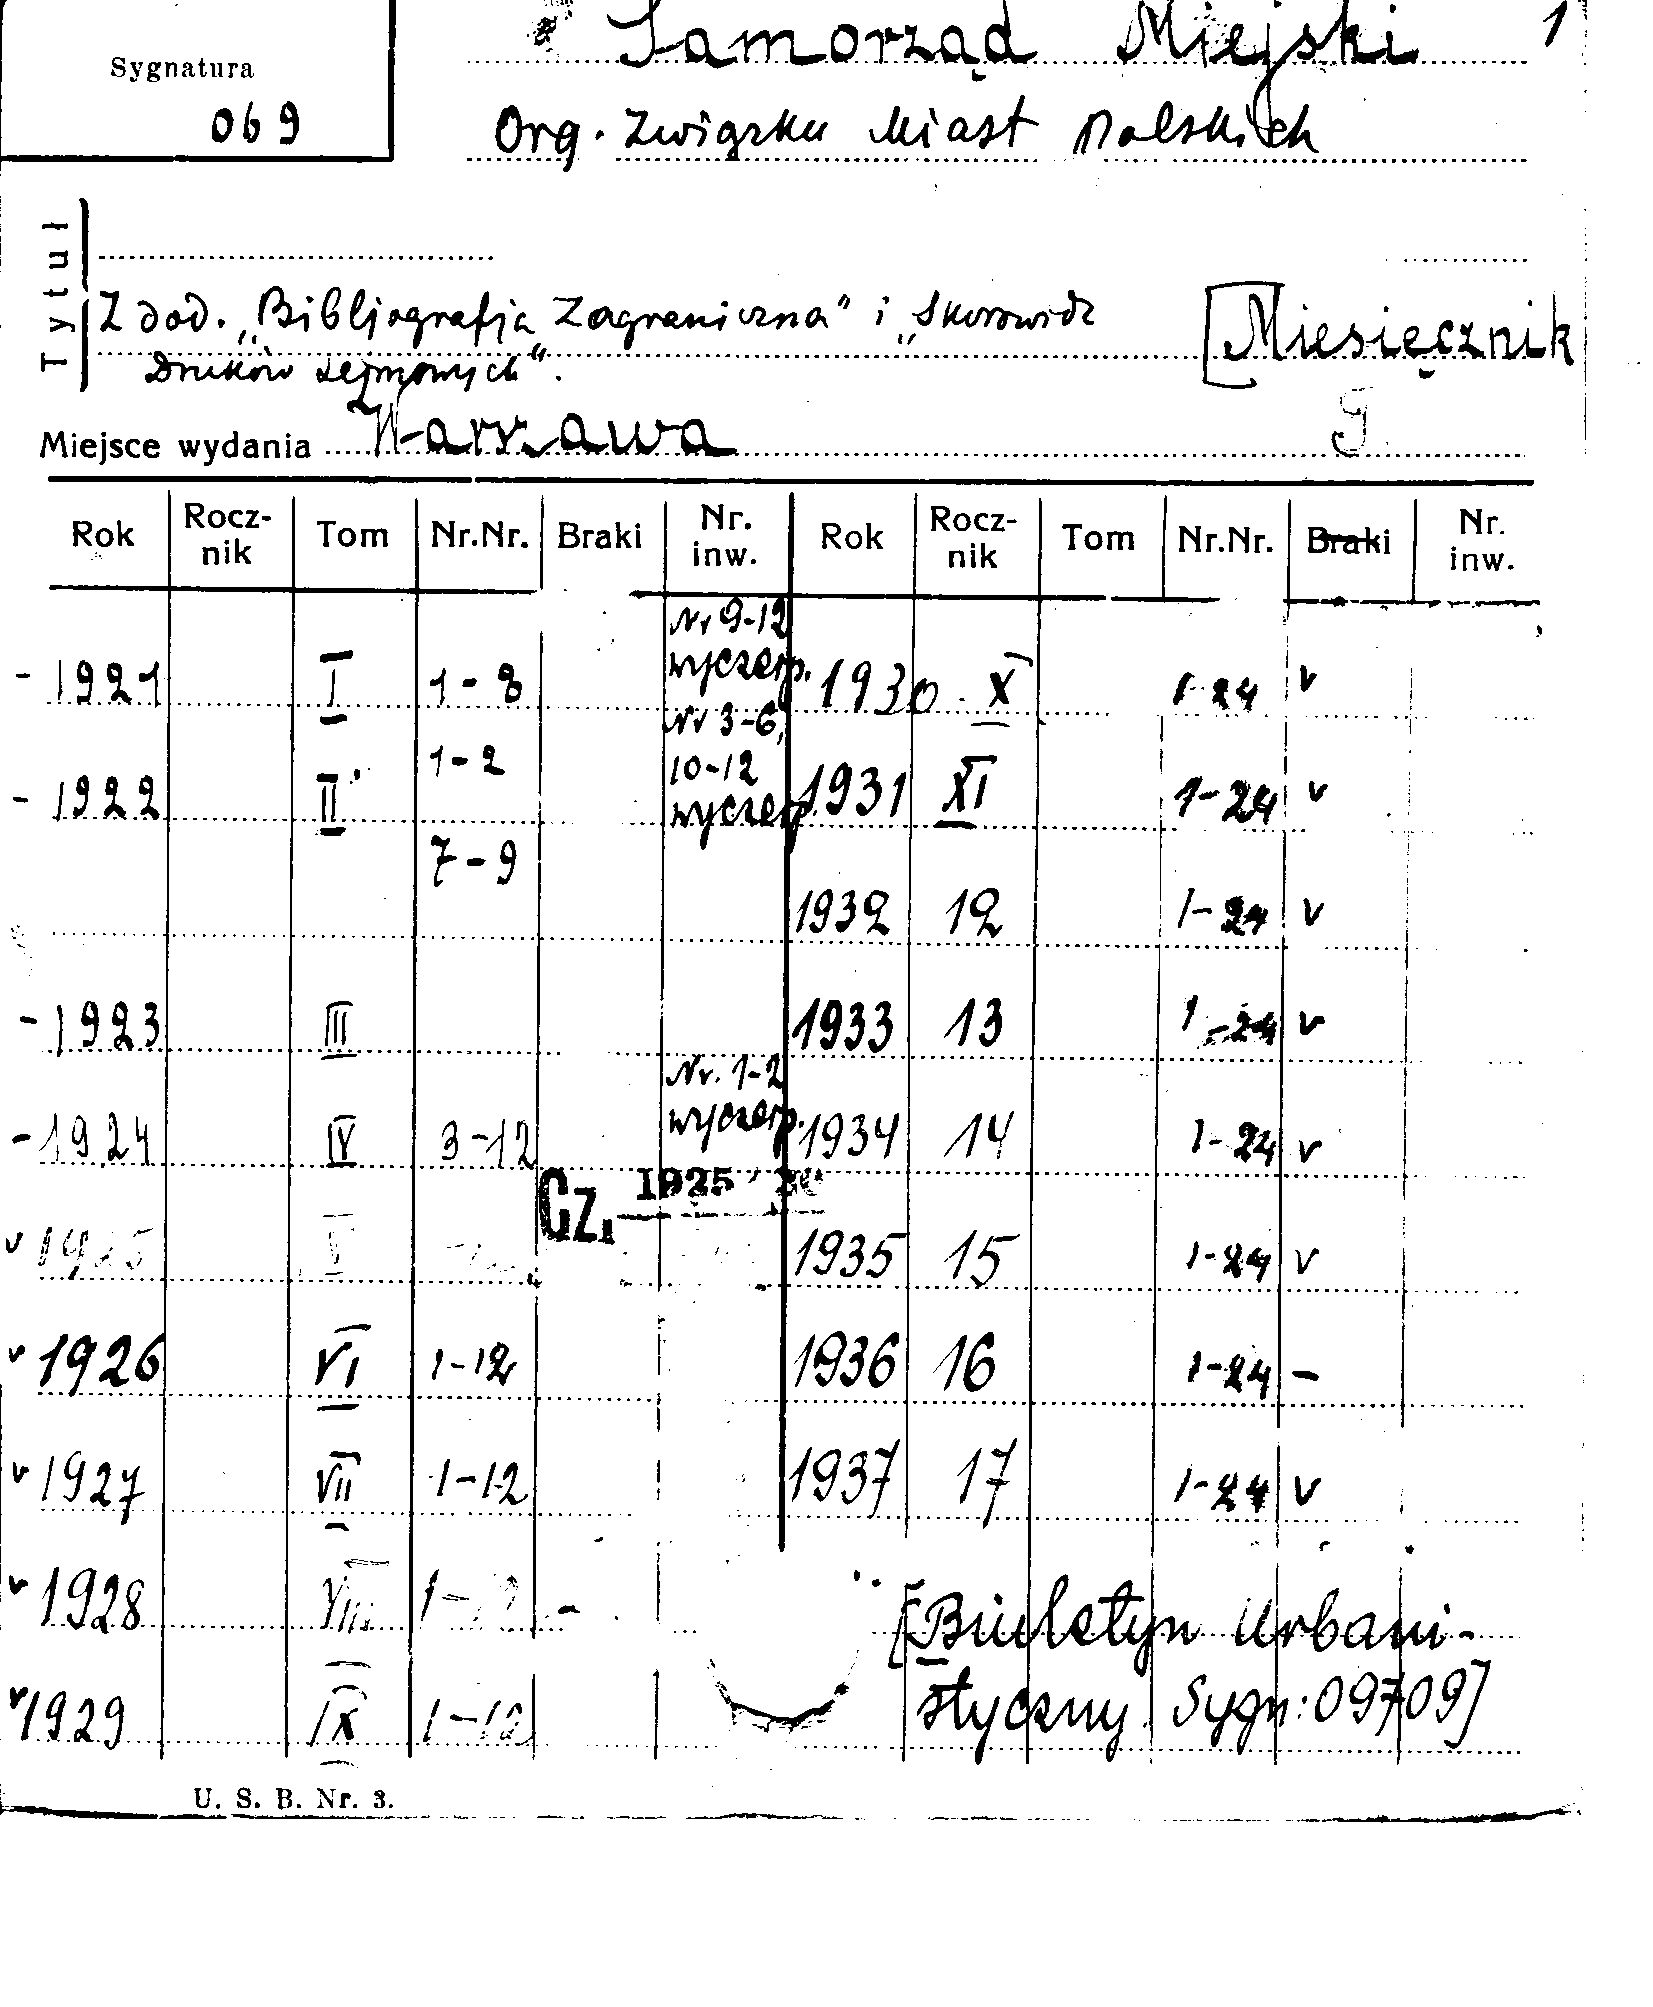 Sygnatura
069
Samorząd Miejski 1
Org. Związku Miast Polskich
Tytuł
Z dod. „Bibliografja Zagraniczna" i „Skorowidz
Druków sejmowych".
[Miesięcznik
Miejsce wydania Warszawa
Rok Rocz-nik Tom Nr.Nr. Braki Nr. inw. Rok Rocz-nik Tom Nr.Nr. Braki Nr. inw.
Nr 9-12
wyczerp.
- 1921 I 1-8 1930 X 1-24 v
Nr 3-6,
10-12
wyczerp.
- 1922 II 1-2 1931 XI 1-24 v
7-9
1932 12 1-24 v
- 1923 III 1933 13 1-24 v
Nr. 1-2
wyczerp.
- 1924 IV 3-12 1934 14 1-24 v
Cz. 1925
v 1925 V 1935 15 1-24 v
v 1926 VI 1-12 1936 16 1-24 -
v 1927 VII 1-12 1937 17 1-24 v
v 1928 VIII 1-12 -
[Biuletyn Urbani-
v 1929 IX 1-12 styczny Sygn: 09709]
U. S. B. Nr. 3.